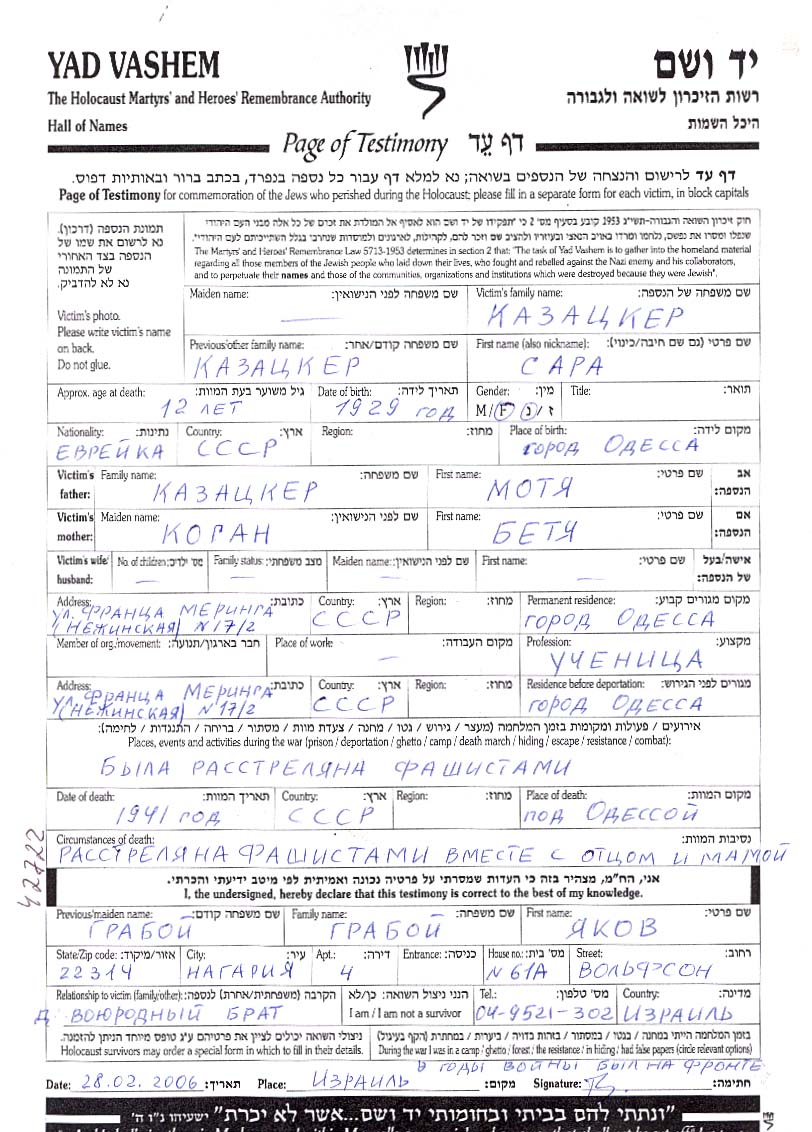 YAD VASHEM
יד ושם
The Holocaust Martyrs' and Heroes' Remembrance Authority
רשות הזיכרון לשואה ולגבורה
Hall of Names
היכל השמות
Page of Testimony דף עד
דף עד לרישום והנצחה של הנספים בשואה; נא למלא דף עבור כל נספה בנפרד, בכתב ברור ובאותיות דפוס.
Page of Testimony for commemoration of the Jews who perished during the Holocaust; please fill in a separate form for each victim, in block capitals
תמונת הנספה (דרכון).
נא לרשום את שמו של
הנספה בצד האחורי
של התמונה
נא לא להדביק.
Victim's photo.
Please write victim's name
on back.
Do not glue.
חוק זיכרון השואה והגבורה-תשי"ג 1953 קובע בסעיף מס' 2 כי "תפקידו של יד ושם הוא לאסוף אל המולדת את זכרם של כל אלה מבני העם היהודי
שנפלו ומסרו את נפשם, נלחמו ומרדו באויב הנאצי ובעוזריו ולהציב שם וזכר להם, לקהילות, לארגונים ולמוסדות שנחרבו בגלל השתייכותם לעם היהודי".
The Martyrs' and Heroes' Remembrance Law 5713-1953 determines in section 2 that: "The task of Yad Vashem is to gather into the homeland material
regarding all those members of the Jewish people who laid down their lives, who fought and rebelled against the Nazi enemy and his collaborators,
and to perpetuate their names and those of the communities, organizations and institutions which were destroyed because they were Jewish".
Maiden name: שם משפחה לפני הנישואין: Victim's family name: שם משפחה של הנספה:
— КАЗАЦКЕР
Previous/other family name: שם משפחה קודם/אחר: First name (also nickname): שם פרטי (גם שם חיבה/כינוי):
КАЗАЦКЕР САРА
Approx. age at death: גיל משוער בעת המוות: Date of birth: תאריך לידה: Gender: מין: Title: תואר:
12 ЛЕТ 1929 ГОД M/F ז/נ
Nationality: נתינות: Country: ארץ: Region: מחוז: Place of birth: מקום לידה:
ЕВРЕЙКА СССР ГОРОД ОДЕССА
Victim's father: Family name: שם משפחה: First name: שם פרטי: אב הנספה:
КАЗАЦКЕР МОТЯ
Victim's mother: Maiden name: שם לפני הנישואין: First name: שם פרטי: אם הנספה:
КОГАН БЕТЯ
Victim's wife/husband: No. of children: מס' ילדים: Family status: מצב משפחתי: Maiden name: שם לפני הנישואין: First name: שם פרטי: אישה/בעל של הנספה:
— — — —
Address: כתובת: Country: ארץ: Region: מחוז: Permanent residence: מקום מגורים קבוע:
УЛ. ФРАНЦА МЕРИНГА СССР ГОРОД ОДЕССА
(НЕЖИНСКАЯ) N 17/2
Member of org./movement: חבר בארגון/תנועה: Place of work: מקום העבודה: Profession: מקצוע:
— УЧЕНИЦА
Address: כתובת: Country: ארץ: Region: מחוז: Residence before deportation: מגורים לפני הגירוש:
УЛ. ФРАНЦА МЕРИНГА СССР ГОРОД ОДЕССА
(НЕЖИНСКАЯ) N 17/2
אירועים / פעולות ומקומות בזמן המלחמה (מעצר / גירוש / גטו / מחנה / צעדת מוות / מסתור / בריחה / התנגדות / לחימה):
Places, events and activities during the war (prison / deportation / ghetto / camp / death march / hiding / escape / resistance / combat):
БЫЛА РАССТРЕЛЯНА ФАШИСТАМИ
Date of death: תאריך המוות: Country: ארץ: Region: מחוז: Place of death: מקום המוות:
1941 ГОД СССР ПОД ОДЕССОЙ
Circumstances of death: נסיבות המוות:
РАССТРЕЛЯНА ФАШИСТАМИ ВМЕСТЕ С ОТЦОМ И МАМОЙ
42722
אני, הח"מ, מצהיר בזה כי העדות שמסרתי על פרטיה נכונה ואמיתית לפי מיטב ידיעתי והכרתי.
I, the undersigned, hereby declare that this testimony is correct to the best of my knowledge.
Previous/maiden name: שם משפחה קודם: Family name: שם משפחה: First name: שם פרטי:
ГРАБОЙ ГРАБОЙ ЯКОВ
State/Zip code: אזור/מיקוד: City: עיר: Apt.: דירה: Entrance: כניסה: House no.: מס' בית: Street: רחוב:
22314 НАГАРИЯ 4 N 61А ВОЛЬФСОН
Relationship to victim (family/other): הקרבה (משפחתית/אחרת) לנספה: הנני ניצול השואה: כן/לא Tel.: מס' טלפון: Country: מדינה:
ДВОЮРОДНЫЙ БРАТ I am / I am not a survivor 04-9521-302 ИЗРАИЛЬ
ניצולי השואה יכולים לציין את פרטיהם ע"ג טופס מיוחד הניתן להזמנה. בזמן המלחמה הייתי במחנה / בגטו / במסתור / בזהות בדויה / ביערות / במחתרת (הקף בעיגול)
Holocaust survivors may order a special form in which to fill in their details. During the war I was in a camp / ghetto / forest / the resistance / in hiding / had false papers (circle relevant options)
В ГОДЫ ВОЙНЫ БЫЛ НА ФРОНТЕ
Date: 28.02.2006 תאריך: Place: ИЗРАИЛЬ מקום: Signature: חתימה:
"ונתתי להם בביתי ובחומותי יד ושם...אשר לא יכרת" ישעיהו נ"ו ה'